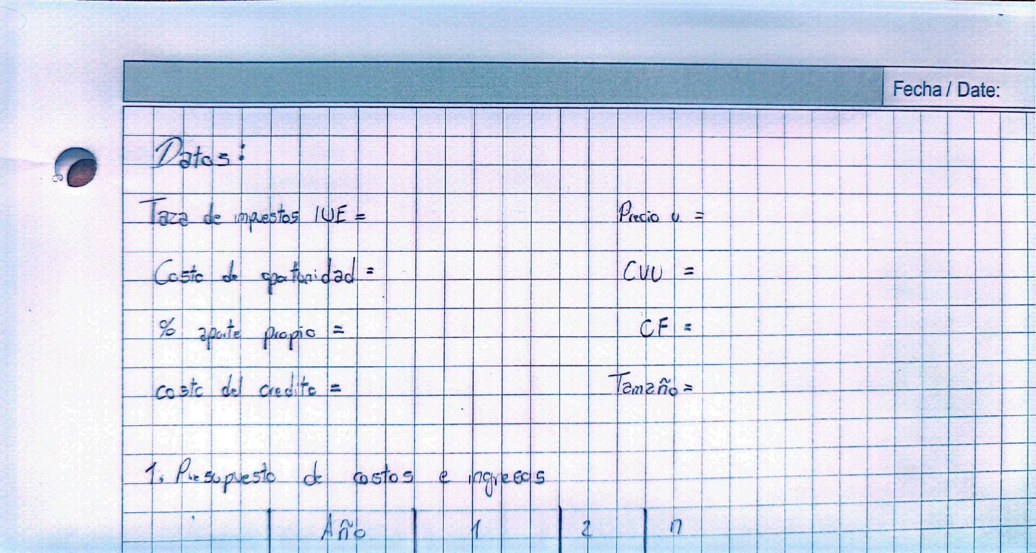 Fecha / Date:
Datos:
Taza de impuestos IUE =
Precio u =
Costo de oportunidad =
CVU =
% aporte propio =
CF =
costo del credito =
Tamaño =
1. Presupuesto de costos e ingresos
Año 1 2 n